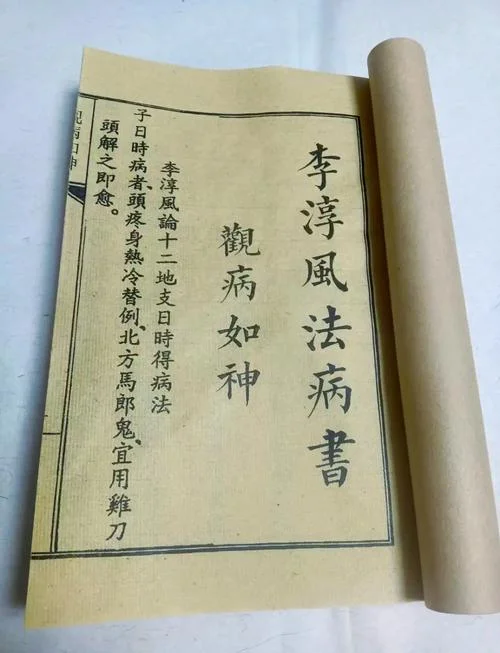 李淳風法病書
觀病如神
李淳風論十二地支日時得病法
子日時病者、頭疼身熱冷替例、北方馬郎鬼、宜用雞刀
頭解之即愈。
觀病如神